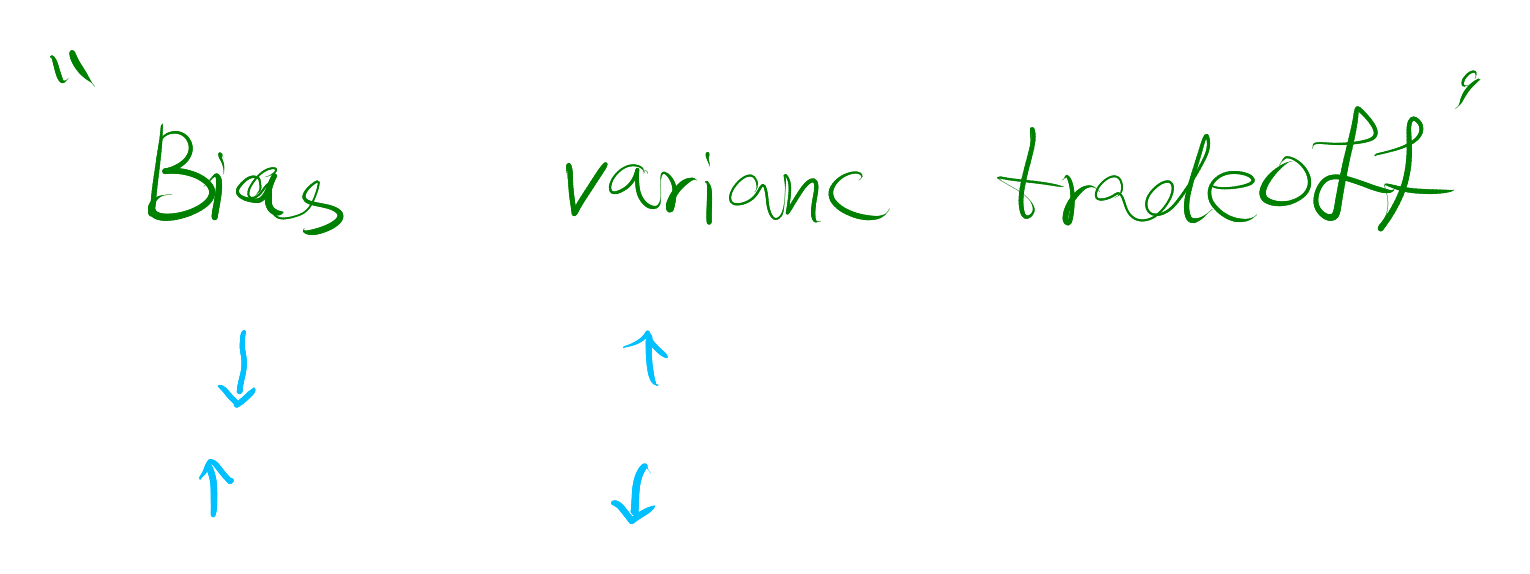 "Bias varianc tradeoff"
↓ ↑
↑ ↓